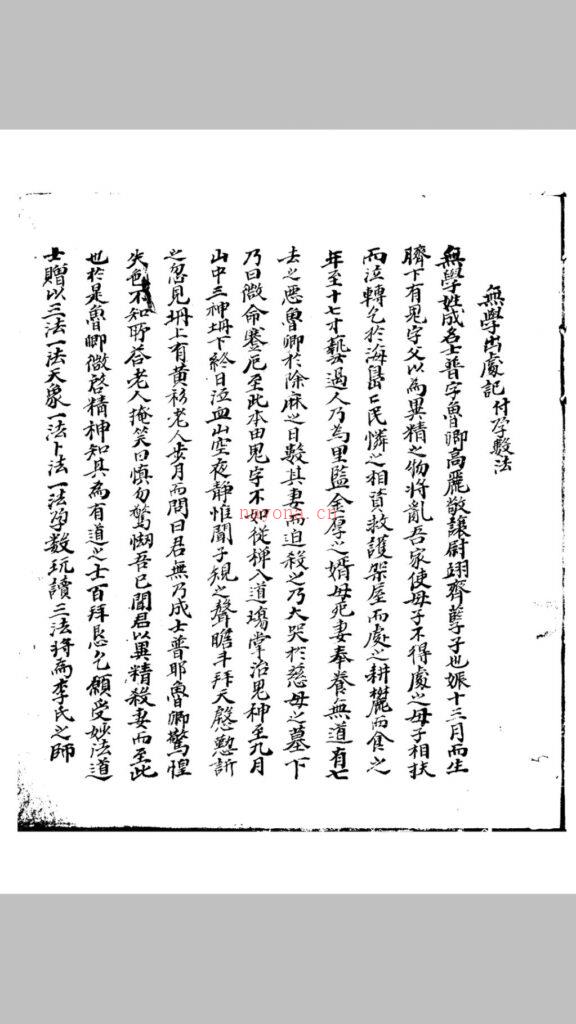 無學出處記 付孕數法
無學姓成名士普字魯卿高麗敬讓尉翊齊孽子也娠十三月而生
臍下有鬼字父以為異精之物將亂吾家使母子不得處之母子相扶
而泣轉乞於海島亡民憐之相資救護架屋而處之耕藨而食之
年至十七才藝過人乃為里監金厚之婿母死妻奉養無道有七
去之惡魯卿於除麻之日數其妻而迫殺之乃大哭於慈母之墓下
乃曰微命蹇厄至此本由鬼字不如從梯入道瑒掌治鬼神至九月
山中三神坍下終日泣血山空夜靜惟聞子規之聲瞻斗拜天慇懃訴
之忽見坍上有黃衫老人步月而問曰君無乃成士普耶魯卿驚惶
失色不知所答老人掩笑曰慎勿驚惘吾已聞君以異精殺妻而至此
也於是魯卿微啓精神知其為有道之士百拜恳乞願受妙法道
士贈以三法一法天象一法卜法一法孕数玩讀三法將為李氏之師
nayona.cn